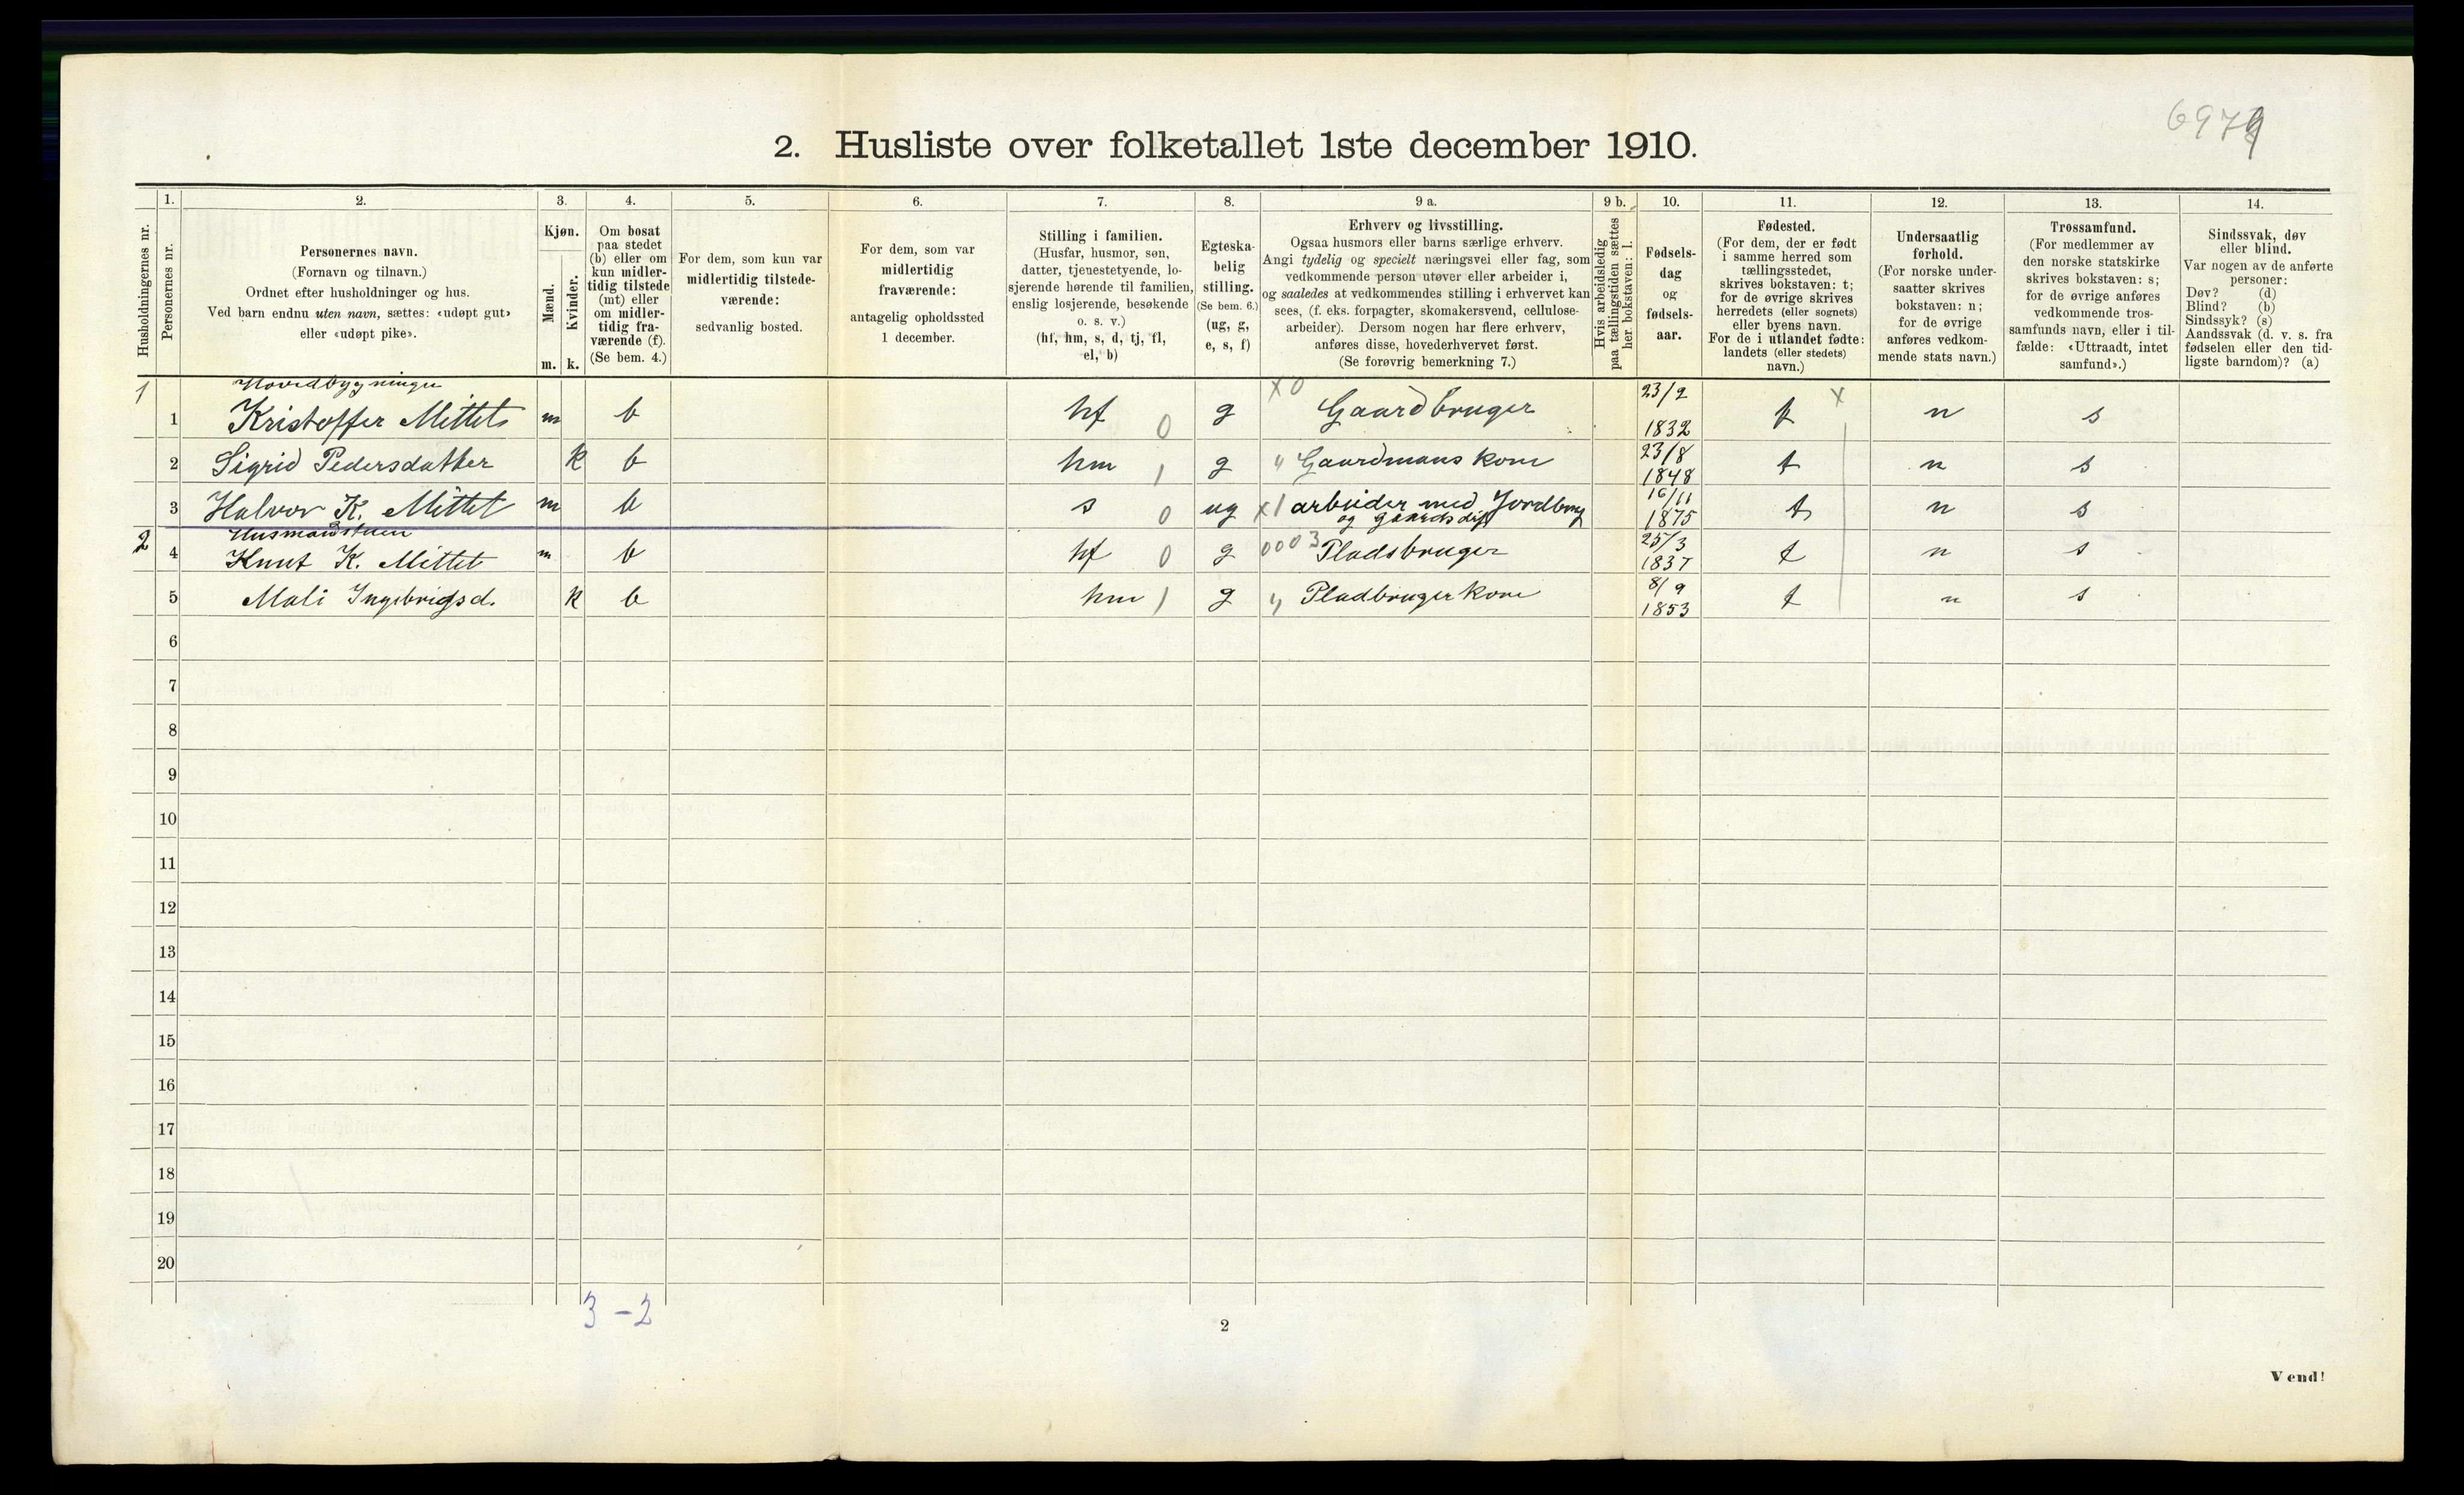 2. Husliste over folketallet 1ste december 1910.
Husholdningernes nr.
1.
Personernes nr.
2.
Personernes navn.
(Fornavn og tilnavn.)
Ordnet efter husholdninger og hus.
Ved barn endnu uten navn, sættes: «udøpt gut»
eller «udøpt pike».
3.
Kjøn.
Mænd.
m.
Kvinder.
k.
4.
Om bosat
paa stedet
(b) eller om
kun midler-
tidig tilstede
(mt) eller
om midler-
tidig fra-
værende (f).
(Se bem. 4.)
5.
For dem, som kun var
midlertidig tilstede-
værende:
sedvanlig bosted.
6.
For dem, som var
midlertidig
fraværende:
antagelig opholdssted
1 december.
7.
Stilling i familien.
(Husfar, husmor, søn,
datter, tjenestetyende, lo-
sjerende hørende til familien,
enslig losjerende, besøkende
o. s. v.)
(hf, hm, s, d, tj, fl,
el, b)
8.
Egteska-
belig
stilling.
(Se bem. 6.)
(ug, g,
e, s, f)
9 a.
Erhverv og livsstilling.
Ogsaa husmors eller barns særlige erhverv.
Angi tydelig og specielt næringsvei eller fag, som
vedkommende person utøver eller arbeider i,
og saaledes at vedkommendes stilling i erhvervet kan
sees, (f. eks. forpagter, skomakersvend, cellulose-
arbeider). Dersom nogen har flere erhverv,
anføres disse, hovederhvervet først.
(Se forøvrig bemerkning 7.)
9 b.
Hvis arbeidsledig
paa tællingstiden sættes
her bokstaven: l.
10.
Fødsels-
dag
og
fødsels-
aar.
11.
Fødested.
(For dem, der er født
i samme herred som
tællingsstedet,
skrives bokstaven: t;
for de øvrige skrives
herredets (eller sognets)
eller byens navn.
For de i utlandet fødte:
landets (eller stedets)
navn.)
12.
Undersaatlig
forhold.
(For norske under-
saatter skrives
bokstaven: n;
for de øvrige
anføres vedkom-
mende stats navn.)
13.
Trossamfund.
(For medlemmer av
den norske statskirke
skrives bokstaven: s;
for de øvrige anføres
vedkommende tros-
samfunds navn, eller i til-
fælde: «Uttraadt, intet
samfund».)
14.
Sindssvak, døv
eller blind.
Var nogen av de anførte
personer:
Døv? (d)
Blind? (b)
Sindssyk? (s)
Aandssvak (d. v. s. fra
fødselen eller den tid-
ligste barndom)? (a)
1 Hovedbygningen x0 23/2 x
1 Kristoffer Mittet m b hf 0 g Gaardbruger 1832 t n s
2 Sigrid Pedersdatter k b hm 1 g " Gaardmans kone 23/8 1848 t n s
3 Halvor K. Mittet m b s 0 ug x1 arbeider med Jordbrug 16/11 1875 t n s
og gaardsdrift
2 Husmandstuen
4 Knut K. Mittet m b hf 0 g 0003 Pladsbruger 25/3 1837 t n s
5 Mali Ingebrigsd. k b hm 1 g " Pladbruger kone 8/9 1853 t n s
6
7
8
9
10
11
12
13
14
15
16
17
18
19
20
3 - 2
2
Vend!